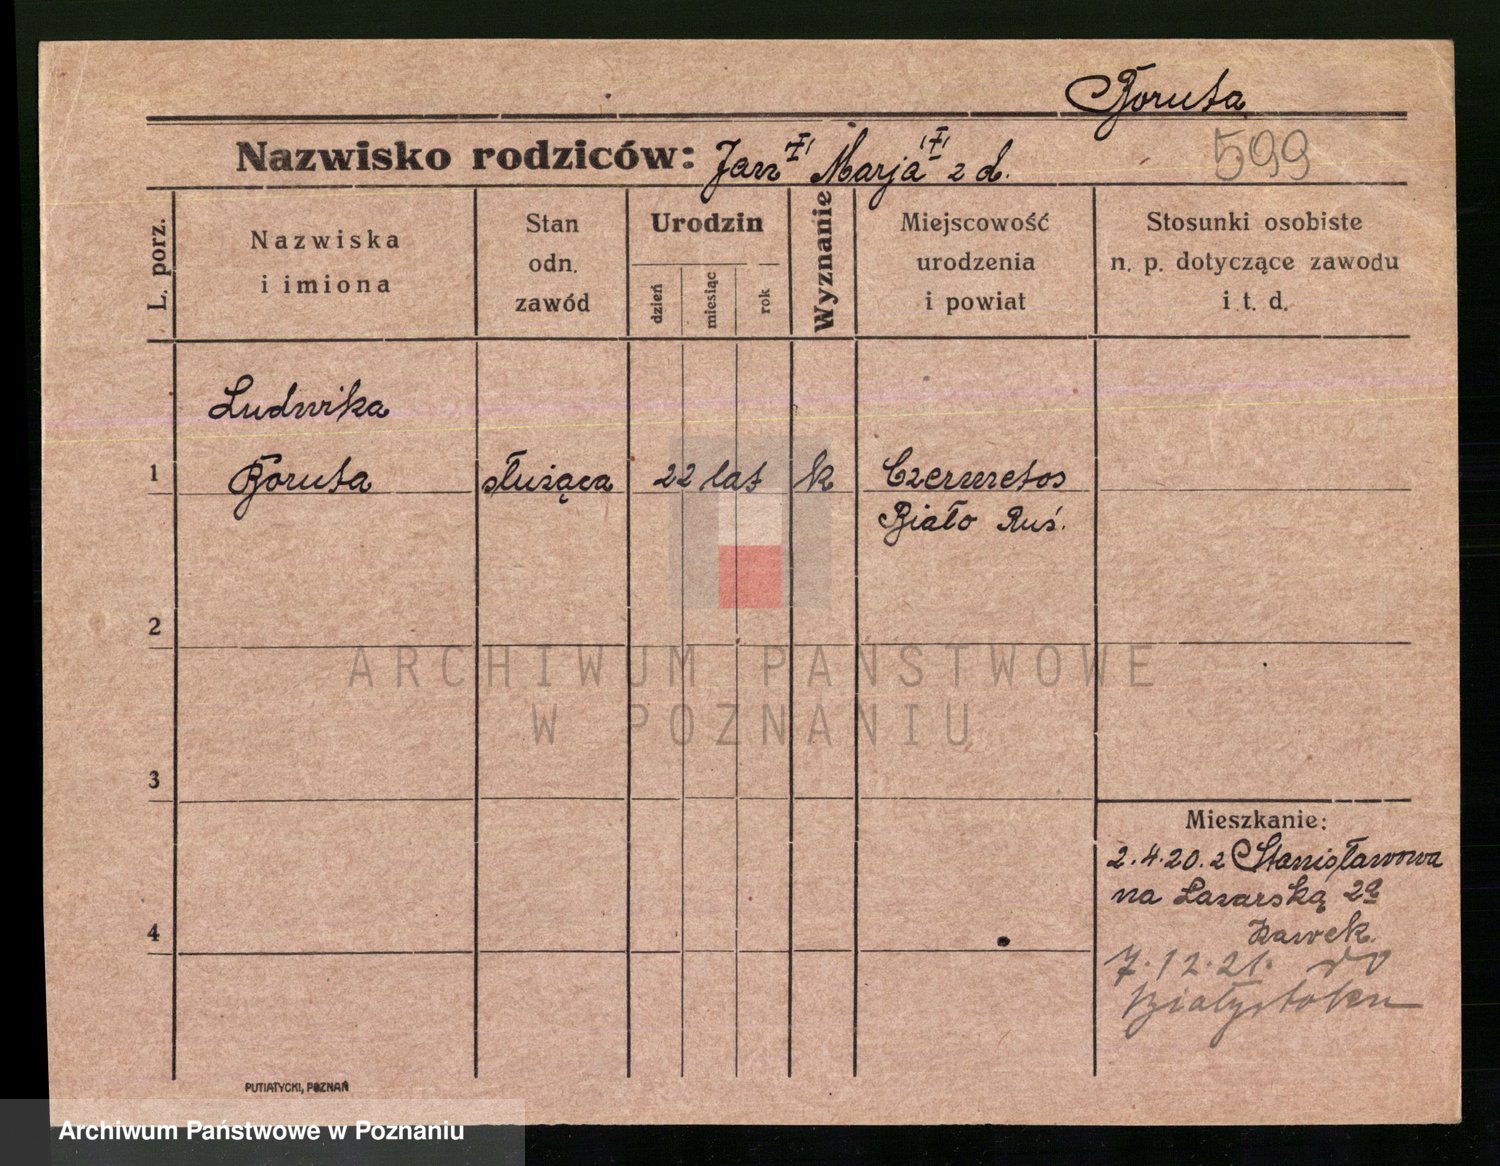 Boruta
Nazwisko rodziców: Jan "I" Marja "I" z d.
599
L. porz.
Nazwiska
i imiona
Stan
odn.
zawód
Urodzin
dzień
miesiąc
rok
Wyznanie
Miejscowość
urodzenia
i powiat
Stosunki osobiste
n. p. dotyczące zawodu
i t. d.
Ludwika
1 Boruta służąca 22 lat k
Biało Ruś.
2
3
4
Mieszkanie:
2.4.20. z Stanisławowa
na Łazarską
7.12.21. do
Białystoku
PUTIATYCKI, POZNAŃ
ARCHIWUM PAŃSTWOWE
W POZNANIU
Archiwum Państwowe w Poznaniu